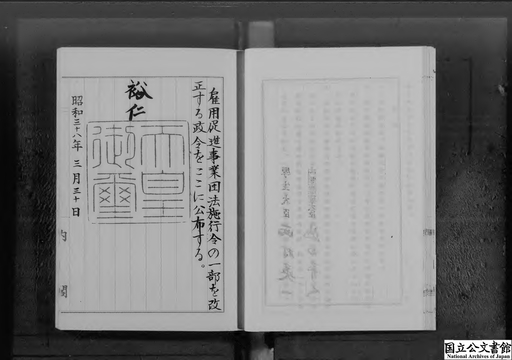 雇用促進事業団法施行令の一部を改
正する政令をここに公布する。
裕仁
天皇
御璽
昭和三十八年三月三十日
内
閣
国立公文書館
National Archives of Japan